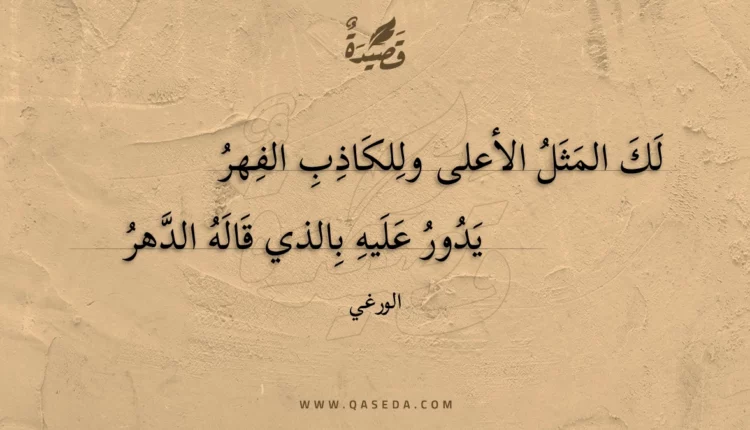 قَصِيْدَةٌ
لَكَ المَثَلُ الأعلى ولِلكَاذِبِ الفِهرُ
يَدُورُ عَلَيهِ بِالذي قَالَهُ الدَّهرُ
الورغي
WWW.QASEDA.COM